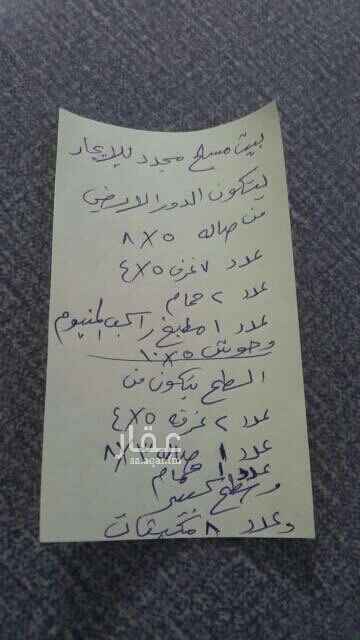 بيت مسلح مجدد للإيجار
يتكون الدور الارضي
من صاله ٥X٨
عدد ٧ غرف ٥X٤
عدد ٢ حمام
عدد ١ مطبخ راكب المنيوم
وحوش ٥X١٠
السطح يتكون من
عدد ٢ غرف ٥X٤
عدد ١ صاله ٨X٣
عدد ١ حمام
وسطح كبير
وعدد ٨ مكيفات
عقار
sa.aqar.fm